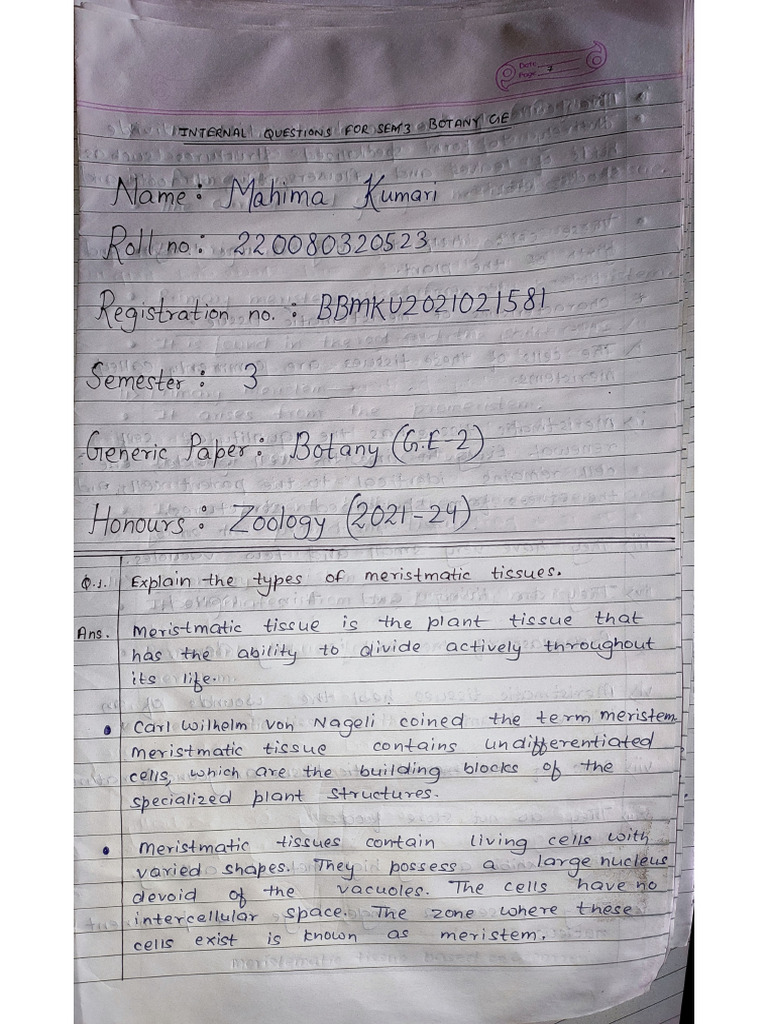 Date
Page 7
INTERNAL QUESTIONS FOR SEM3 BOTANY GE
Name: Mahima Kumari
Roll no: 220080320523
Registration no.: BBMKU2021021581
Semester: 3
Generic Paper: Botany (G.E-2)
Honours: Zoology (2021-24)
Q.1. Explain the types of meristmatic tissues.
Ans. Meristmatic tissue is the plant tissue that
has the ability to divide actively throughout
its life.
• Carl Wilhelm von Nageli coined the term meristem
meristmatic tissue contains undifferentiated
cells, which are the building blocks of the
specialized plant structures.
• Meristmatic tissues contain living cells with
varied shapes. They possess a large nucleus
devoid of the vacuoles. The cells have no
intercellular space. The zone where these
cells exist is known as meristem.